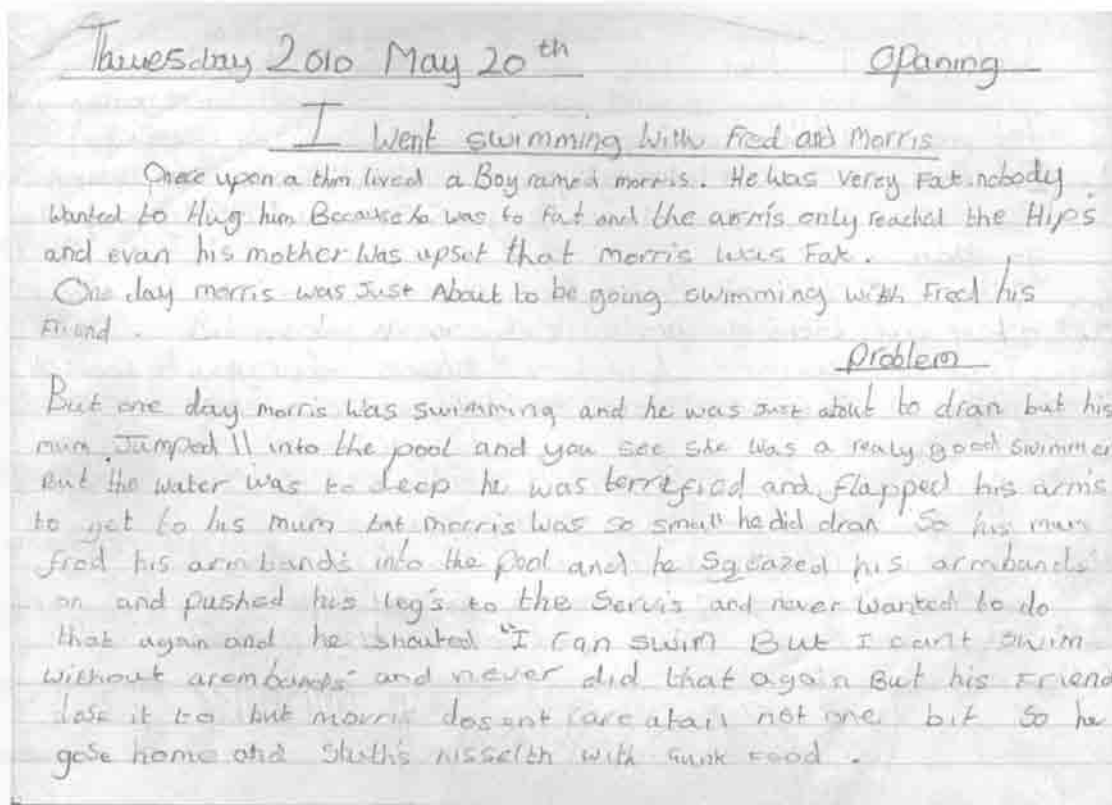 Thuresday 2010 May 20th Opaning
I Went swimming With Fred and Morris
Once upon a thim lived a Boy named morris. He was verey Fat nobody
Wanted to Hug him Because he was to Fat and the arms only reached the Hips
and evan his mother Was upset that morris was Fat.
One day morris was Just About to be going swimming with Fred his
Friend.
Problem
But one day morris was swimming and he was Just about to dran but his
mum Jumped 11 into the pool and you see she was a realy good swimmer
But the water was to deep he was terrefied and flapped his arms
to get to his mum but morris was so small he did dran So his mum
fred his armbands into the Pool and he Sqeazed his armbands
on and pushed his leg's to the Servis and never wanted to do
that again and he shouted "I can swim But I can't swim
without arembands" and never did that again But his Friend
dose it to but morris dosent care atall not one bit So he
gose home and with Gunk Food.